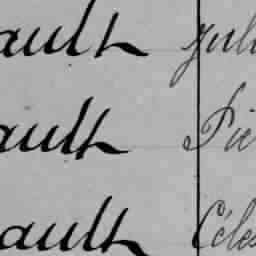 ault Jul
ault Pie
ault Céles